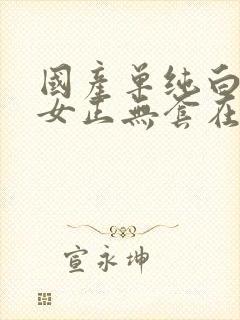 國產單純白
女正無套在
宣永坤